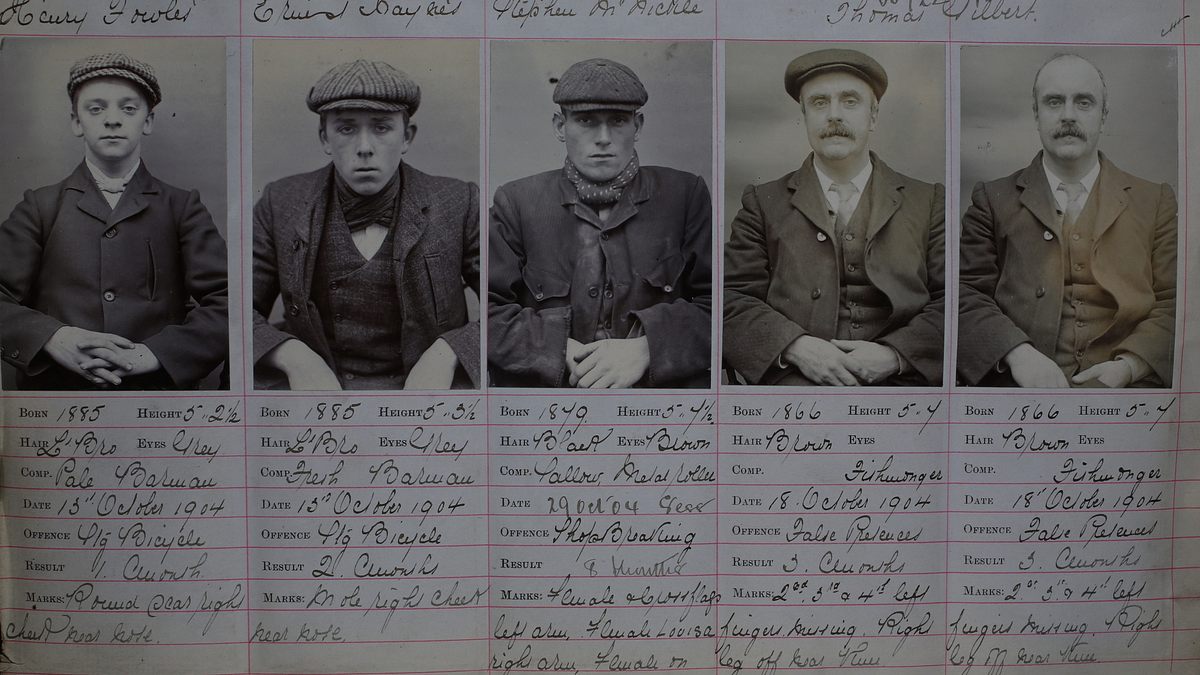 Henry Fowles Ernest Haynes Stephen McNickle Thomas Gilbert.
BORN 1885 HEIGHT 5.. 2½
HAIR Lt Bro EYES Grey
COMP. Pale Barman
DATE 13th October 1904
OFFENCE Stg Bicycle
RESULT 1. Month.
MARKS: Round scar right
cheek near nose.
BORN 1885 HEIGHT 5.. 3½
HAIR Lt Bro EYES Grey
COMP. Fresh Barman
DATE 13th October 1904
OFFENCE Stg Bicycle
RESULT 2. Months
MARKS: Mole right cheek
near nose,
BORN 1879. HEIGHT 5.. 7½
HAIR Black EYES Brown
COMP. Sallow Metal roller
DATE 29 Oct 04 Sess
OFFENCE Shop Breaking
RESULT 8 Months
MARKS: Female & Cross flags
left arm, Female Louisa
right arm, Female on
BORN 1866 HEIGHT 5.. 4
HAIR Brown EYES
COMP. Fishmonger
DATE 18. October 1904
OFFENCE False Pretences
RESULT 3. Months
MARKS: 2nd, 3rd & 4th left
fingers missing. Right
leg off near knee
BORN 1866 HEIGHT 5.. 4
HAIR Brown EYES
COMP. Fishmonger
DATE 18th October 1904
OFFENCE False Pretences
RESULT 3. Months
MARKS: 2nd 3rd & 4th left
fingers missing. Right
leg off near knee